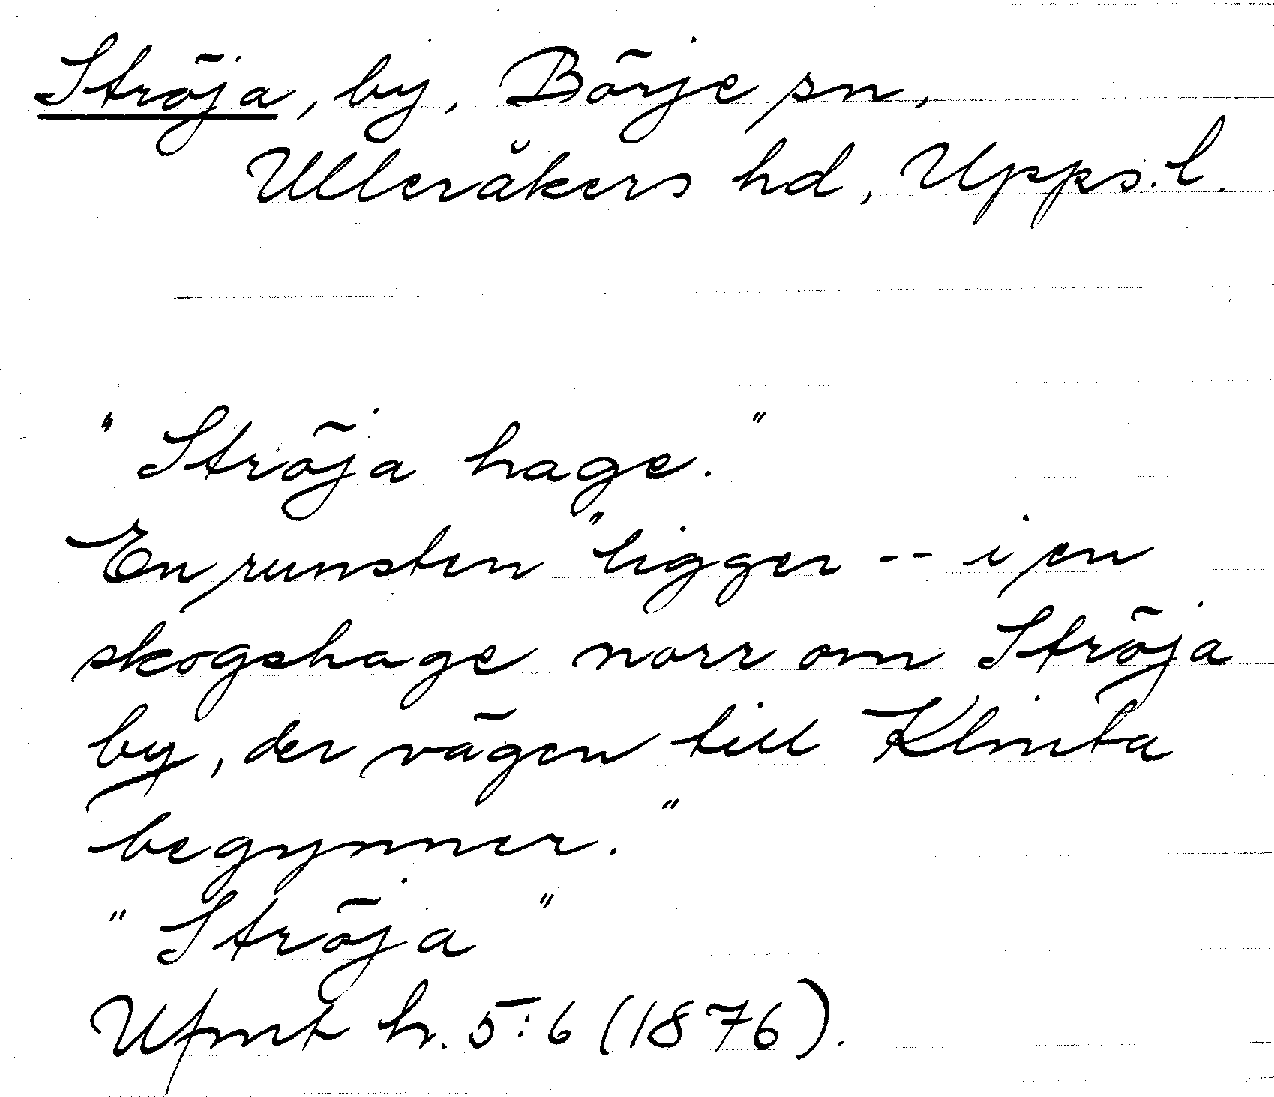 Ströja, by, Börje sn,
Ulleråkers hd, Upps. l.
"Ströja hage."
En runsten "ligger -- i en
skogshage norr om Ströja
by, der vägen till Klinta
begynner."
"Ströja"
Ufmt h. 5:6 (1876).